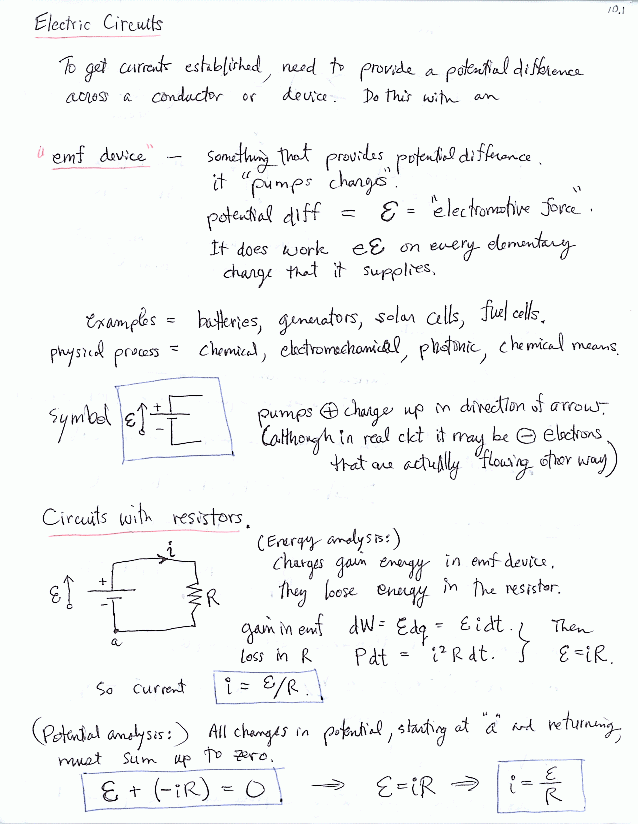 10.1
Electric Circuits
To get currents established, need to provide a potential difference
across a conductor or device. Do this with an
"emf device" – something that provides potential difference.
it "pumps charges".
potential diff = ℰ = "electromotive force".
It does work eℰ on every elementary
charge that it supplies.
Examples = batteries, generators, solar cells, fuel cells.
physical process = chemical, electromechanical, photonic, chemical means.
Symbol ℰ↑ + –
pumps ⊕ charge up in direction of arrow.
(although in real ckt it may be ⊖ electrons
that are actually flowing other way)
Circuits with resistors.
(Energy analysis:)
Charges gain energy in emf device.
They loose energy in the resistor.
i
ℰ↑ + – R
a
gain in emf dW = ℰdq = ℰidt. } Then
loss in R Pdt = i²Rdt. ℰ=iR.
So current i = ℰ/R.
(Potential analysis:) All changes in potential, starting at "a" and returning,
must sum up to zero.
ℰ + (-iR) = 0 → ℰ=iR ⇒ i = ℰ/R